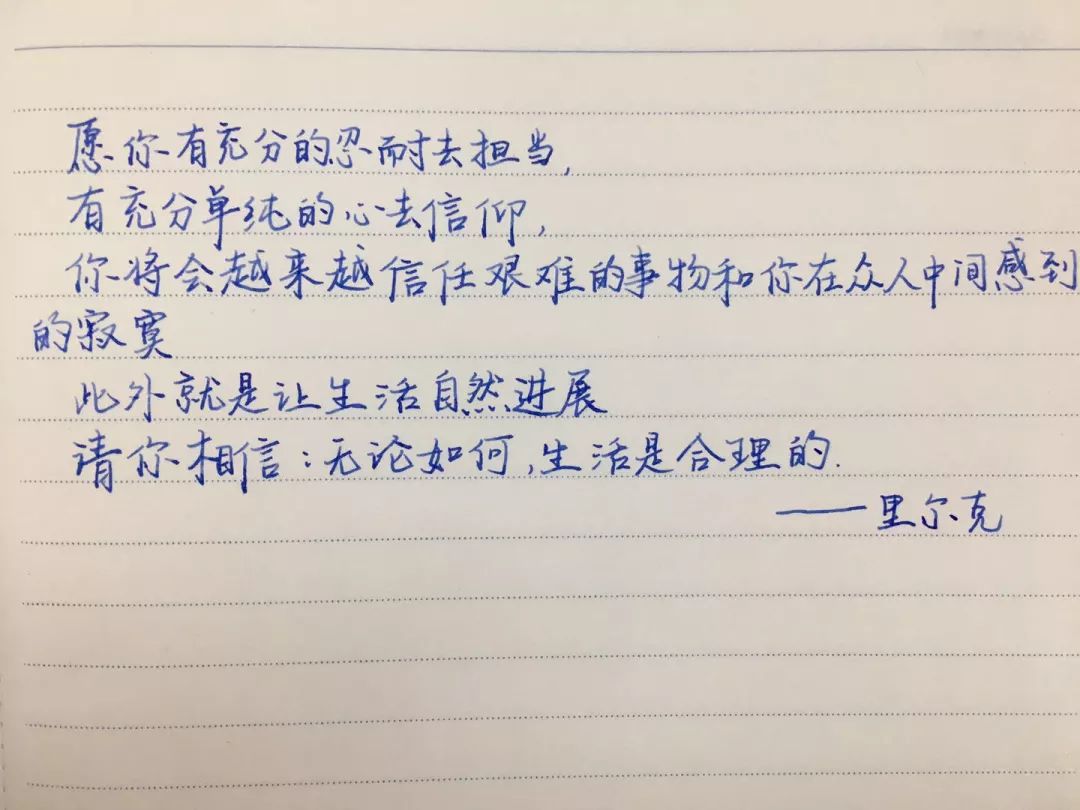 愿你有充分的忍耐去担当,
有充分单纯的心去信仰,
你将会越来越信任艰难的事物和你在众人中间感到
的寂寞
此外就是让生活自然进展
请你相信:无论如何,生活是合理的.
——里尔克